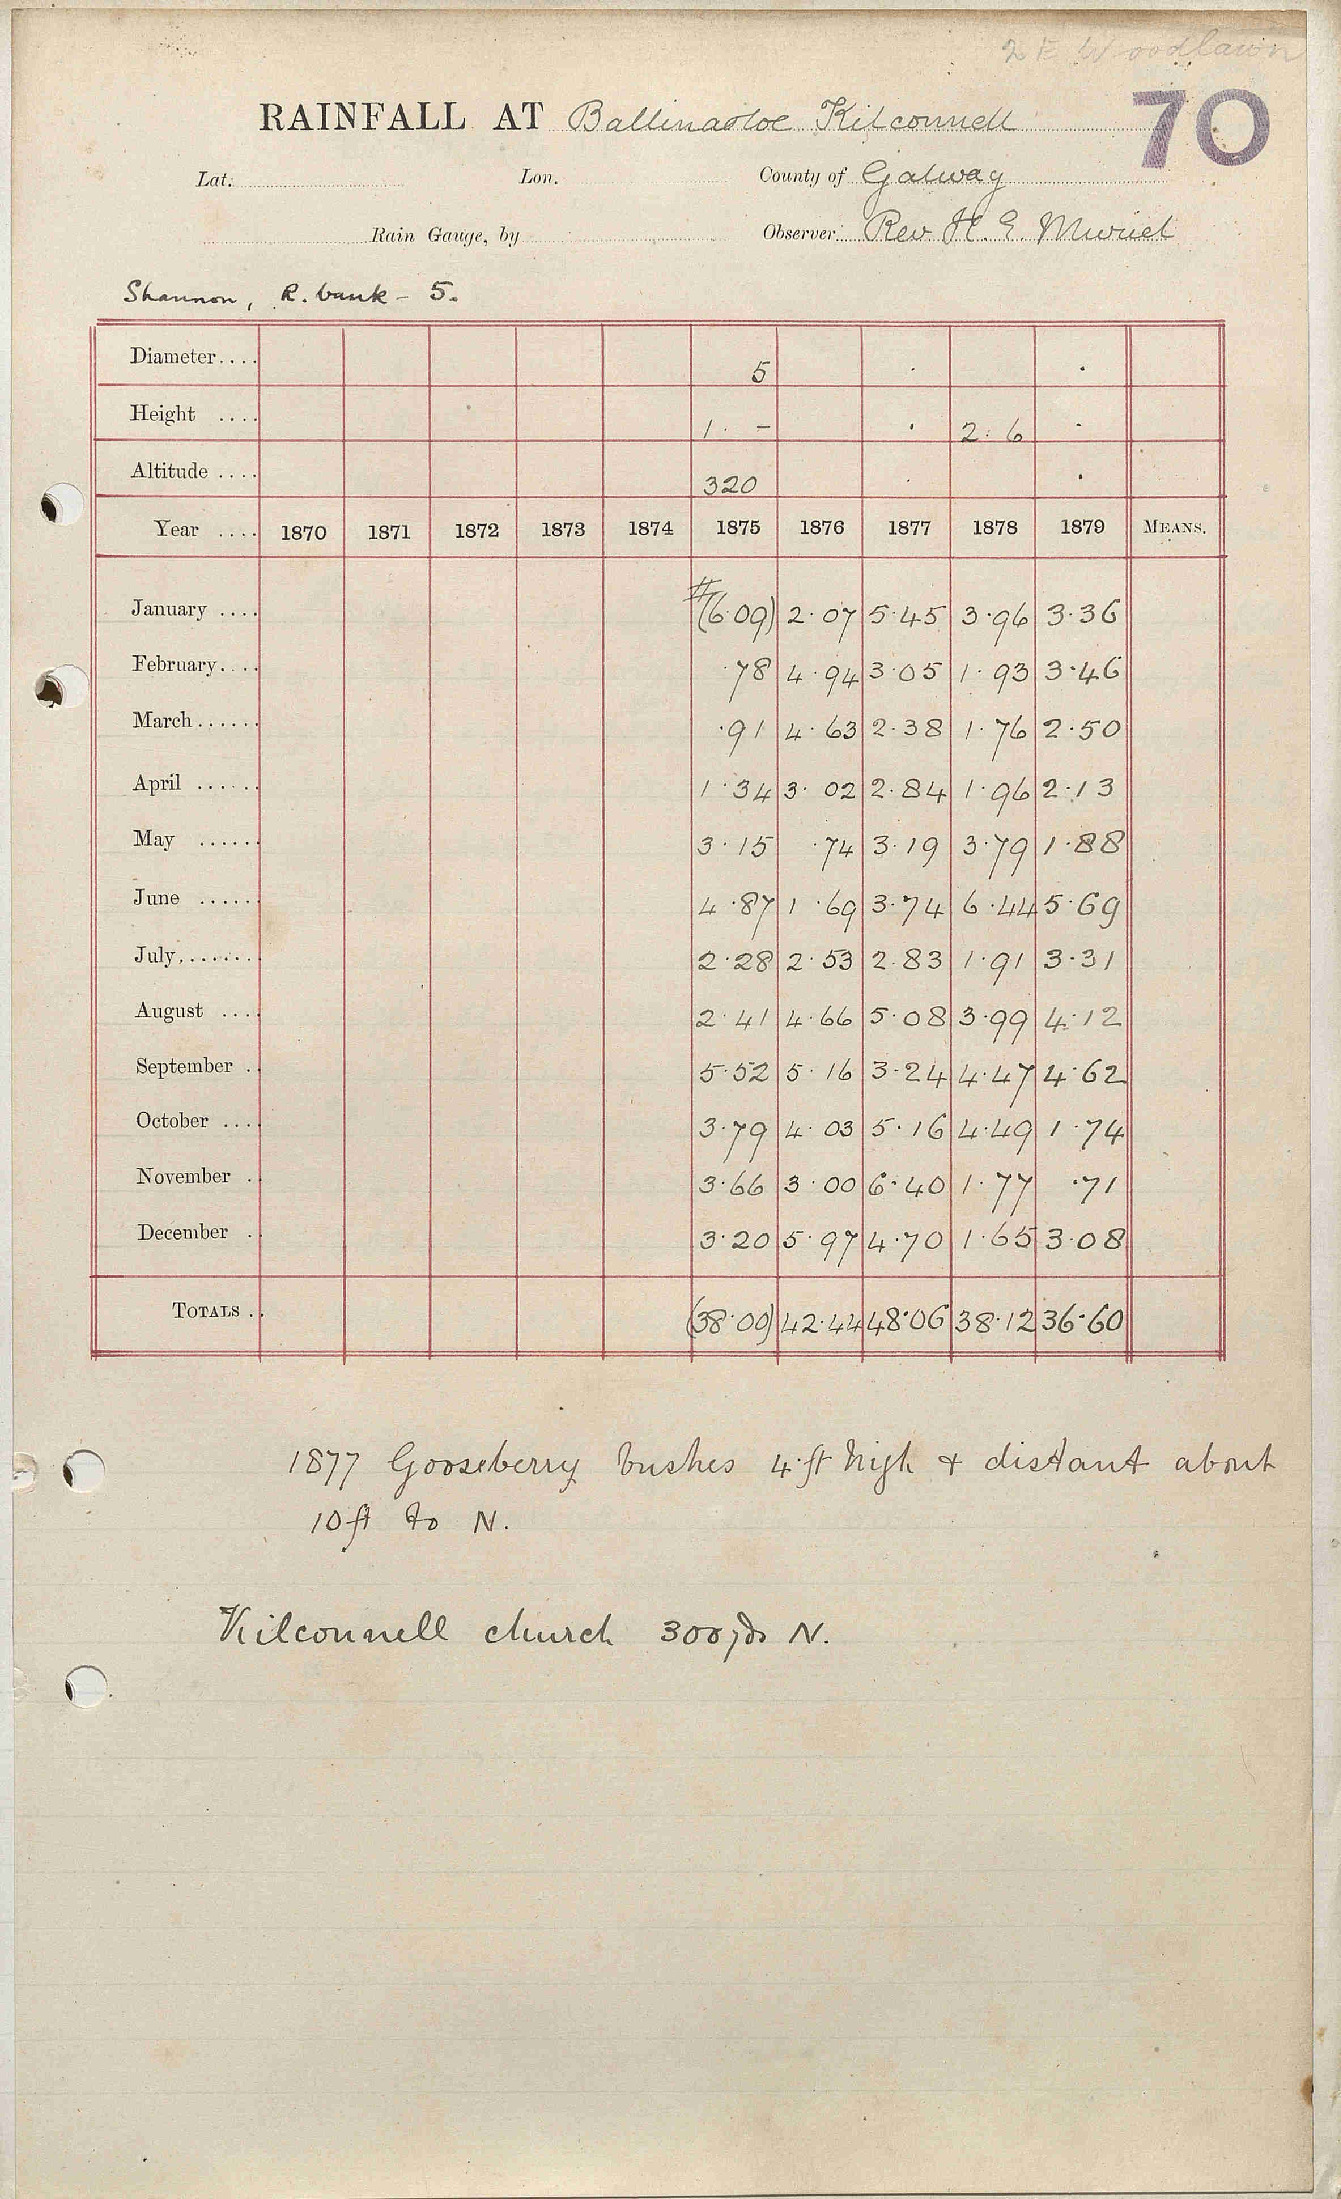 2 E Woodlawn
RAINFALL AT Ballinasloe Kilconnell 70
Lat. Lon. County of Galway
Rain Gauge, by Observer Rev H. G. Muriel
Shannon, R. bank - 5.
Diameter.... 5 . .
Height .... 1. - . 2. 6 .
Altitude .... 320 . .
Year .... 1870 1871 1872 1873 1874 1875 1876 1877 1878 1879 MEANS.
January .... #(6.09) 2.07 5.45 3.96 3.36
February.... .78 4.94 3.05 1.93 3.46
March...... .91 4.63 2.38 1.76 2.50
April ...... 1.34 3.02 2.84 1.96 2.13
May ...... 3.15 .74 3.19 3.79 1.88
June ...... 4.87 1.69 3.74 6.44 5.69
July....... 2.28 2.53 2.83 1.91 3.31
August .... 2.41 4.66 5.08 3.99 4.12
September .. 5.52 5.16 3.24 4.47 4.62
October .... 3.79 4.03 5.16 4.49 1.74
November .. 3.66 3.00 6.40 1.77 .71
December .. 3.20 5.97 4.70 1.65 3.08
TOTALS .. (38.00) 42.44 48.06 38.12 36.60
1877 Gooseberry bushes 4 ft high & distant about
10 ft to N.
Kilconnell church 300 yds N.